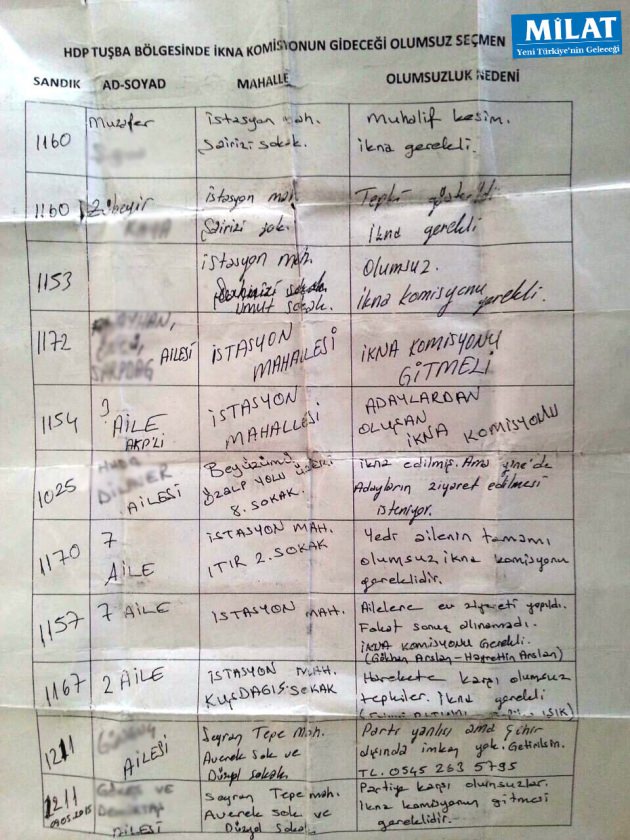 MİLAT
Yeni Türkiye'nin Geleceği
HDP TUŞBA BÖLGESİNDE İKNA KOMİSYONUN GİDECEĞİ OLUMSUZ SEÇMEN
SANDIK AD-SOYAD MAHALLE OLUMSUZLUK NEDENİ
1160
Muzafer
istasyon mah.
Sairizi sokak.
Muhalif kesim.
ikna gerekli.
1160
Zübeyir
KAYA
istasyon mah
Sairizi sok.
Tepki
İkna gerekli
1153
istasyon mah.
umut sokak.
Olumsuz.
İkna komisyonu gerekli.
1172
AYHAN,
SARPDAĞ AİLESİ
İSTASYON
MAHALLESİ
İKNA KOMİSYONU
GİTMELİ
1154
3
AİLE
AKP'Lİ
İSTASYON
MAHALLESİ
ADAYLARDAN
OLUŞAN
İKNA KOMİSYONU
1025
AİLESİ
Beyüzümü
ÖZALP YOLU ÜZERİ
8. SOKAK.
ikna edilmiş. Ama yine'de
Adayların ziyaret edilmesi
isteniyor.
1170
7
AİLE
İSTASYON MAH.
ITIR 2. SOKAK
Yedi ailenin tamamı
olumsuz ikna komisyonu
gereklidir.
1157
7 AİLE
İSTASYON MAH.
Ailelere ev ziyareti yapıldı.
Fakat sonuç alınamadı.
İKNA KOMİSYONU Gerekli.
(Gökhan Arslan-Hayrettin Arslan)
1167
2 AİLE
İSTASYON MAH.
KUŞDAĞIŞ. SOKAK
Harekete karşı olumsuz
tepkiler. İkna gerekli
IŞIK)
1211
AİLESİ
Seyran Tepe Mah.
Averek Sok ve
Düzyol sokak.
Parti yanlısı ama Şehir
dışında imkan yok. Getirilsin.
TL. 0545 263 5795
1211
09.05.2015
ve
AİLESİ
Seyran Tepe mah.
Averek sok ve
Düzyol Sokak
Partiye karşı olumsuzlar.
İkna komisyonun gitmesi
gereklidir.